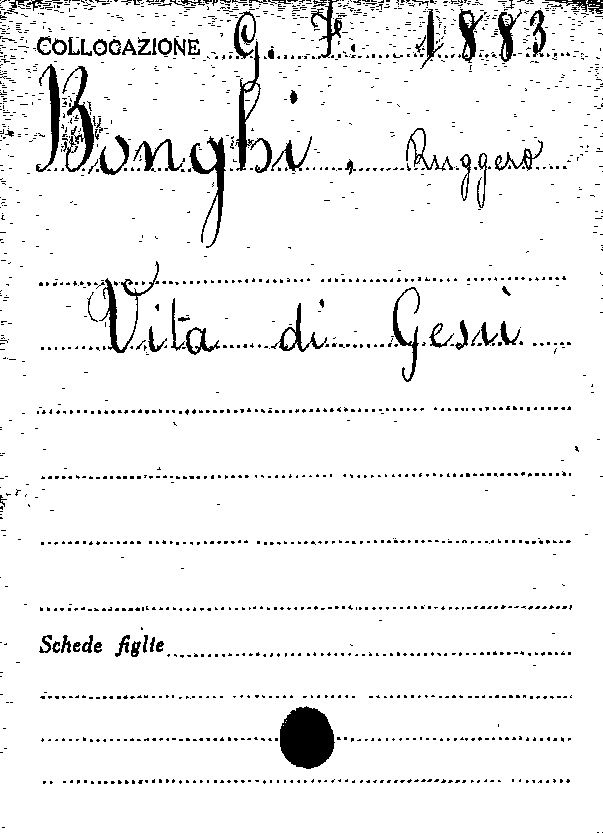 COLLOCAZIONE G. F. 1883
Bonghi, Ruggero
Vita di Gesù
Schede figlie